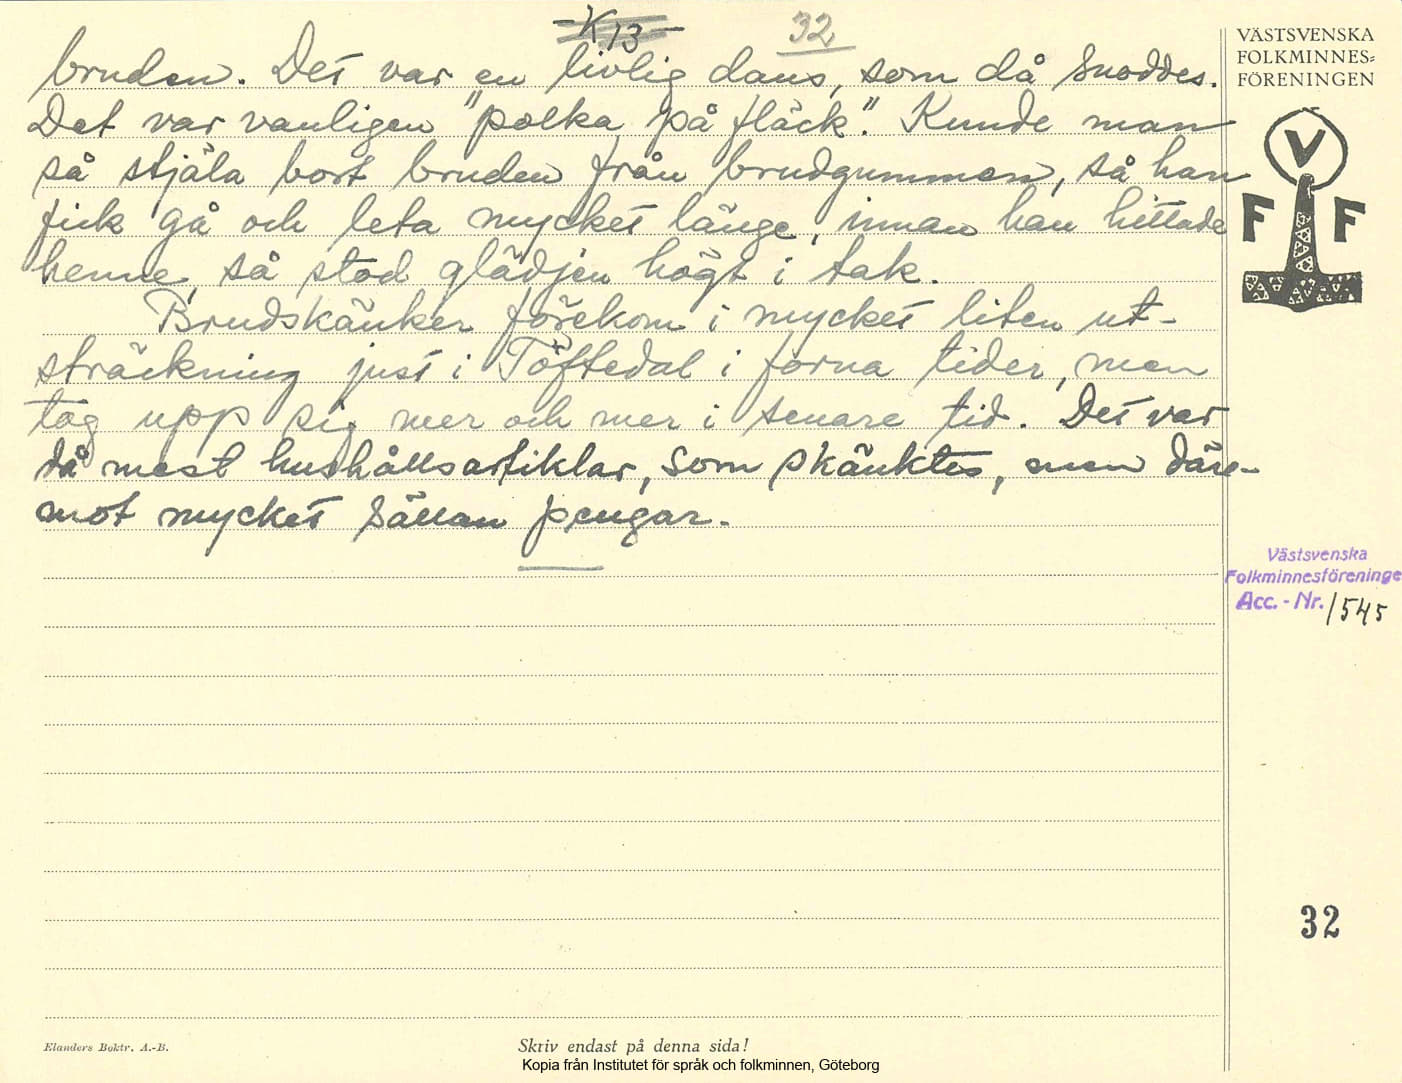 K 13
32
bruden. Det var en livlig dans, som då snoddes.
Det var vanligen "polka på fläck". Kunde man
så stjäla bort bruden från brudgummen, så han
fick gå och leta mycket länge, innan han hittade
henne, så stod glädjen högt i tak.
Brudskänker förekom i mycket liten ut-
sträckning just i Töftedal i forna tider, men
tog upp sig mer och mer i senare tid. Det var
då mest hushållsartiklar, som skänktes, men däre-
mot mycket sällan pengar.
VÄSTSVENSKA
FOLKMINNES-
FÖRENINGEN
V
F F
Västsvenska
Folkminnesföreninge
Acc. - Nr. 1545
32
Elanders Boktr. A.-B.
Skriv endast på denna sida!
Kopia från Institutet för språk och folkminnen, Göteborg